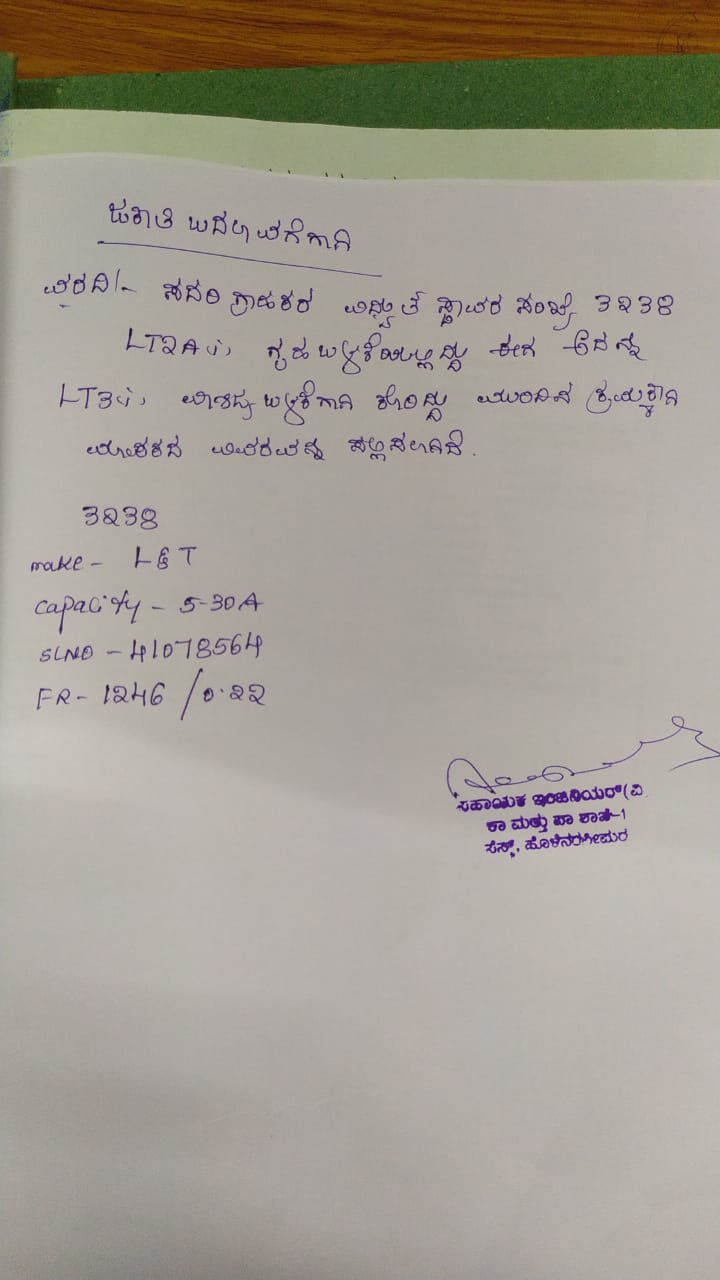 ಜಕಾತಿ ಬದಲಾವಣೆಗಾಗಿ
ವರದಿ/- ಸದರಿ ಗ್ರಾಹಕರ ವಿದ್ಯುತ್ ಸ್ಥಾವರ ಸಂಖ್ಯೆ 3238
LT2A(i) ಗೃಹ ಬಳಕೆಯಲ್ಲಿದ್ದು ಈಗ ಅದನ್ನು
LT3(i) ವಾಣಿಜ್ಯ ಬಳಕೆಗಾಗಿ ಕೋರಿದ್ದು ಮುಂದಿನ ಕ್ರಮಕ್ಕಾಗಿ
ಮಾಪಕದ ವಿವರವನ್ನು ಸಲ್ಲಿಸಲಾಗಿದೆ.
3238
make - L&T
capacity - 5-30A
SLNO - 41078564
FR - 1246 /0.22
ಸಹಾಯಕ ಇಂಜಿನಿಯರ್(ವಿ
ಕಾ ಮತ್ತು ಪಾ ಶಾಖೆ-1
ಸೆಸ್ಕ್, ಹೊಳೆನರಸೀಪುರ